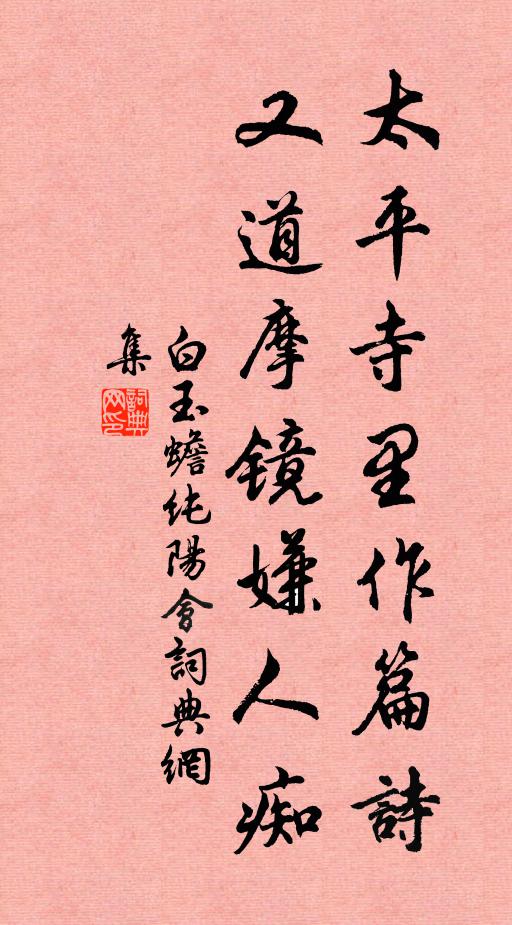 太平寺里作篇詩
又道摩镜嫌人痴
白玉蟾纯陽會詞典網
集
詞典
网印